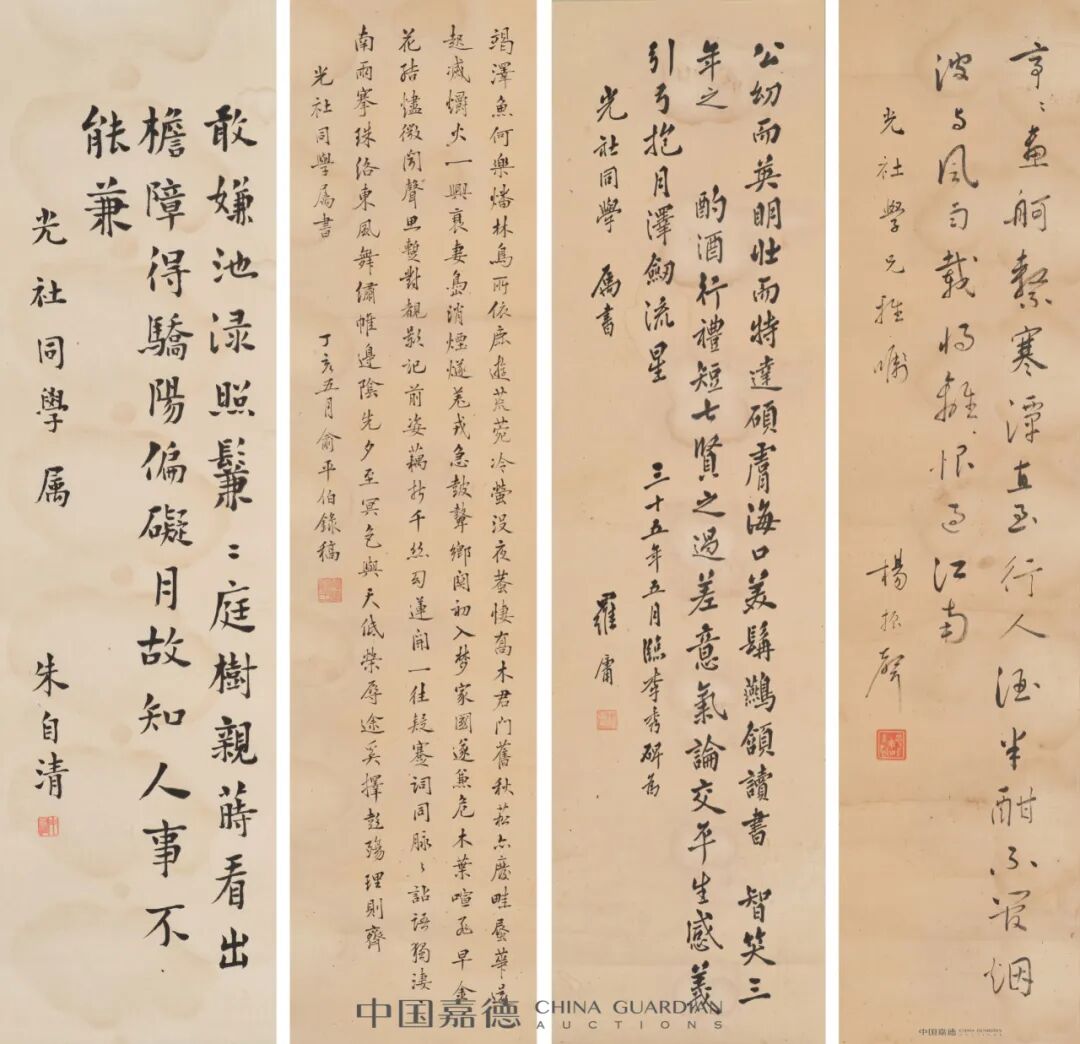 敢嫌池淥照鬑鬑庭樹親蒔看出
檐障得驕陽偏礙月故知人事不
能兼
光社同學属
朱自清
竭澤魚何樂燔林鳥所依鹿遊荒苑冷螢没夜
高木君門舊秋菘
起滅爝火一興衰妻島消煙燧羌戎急鼓鼙鄉関初入夢家國遂兼危木葉喧
早金
花結燼微聞聲息暫對觀影記前姿藕折千絲勾蓮開一往疑蹇词同脉
詀語獨淒
南雨搴珠络東風舞繡帷邊陰先夕至冥色與天低榮辱途奚擇彭殤理則齊
光社同學属書
丁亥五月俞平伯錄稿
公幼而英明壮而特達碩膚海口美鬍鷰頷讀書
智笑三
年之
酌酒行禮短七賢之過差意氣論交平生感義
引弓抱月澤劒流星
三十五年五月臨李秀碑爲
光社同學
属書
羅庸
亭亭畫舸繫寒潭直至行人酒半酣不管烟
波与風雨載將離恨过江南
光社學兄雅嘱
楊振聲
中国嘉德 CHINA GUARDIAN AUCTIONS
中国嘉德 CHINA GUARDIAN AUCTIONS